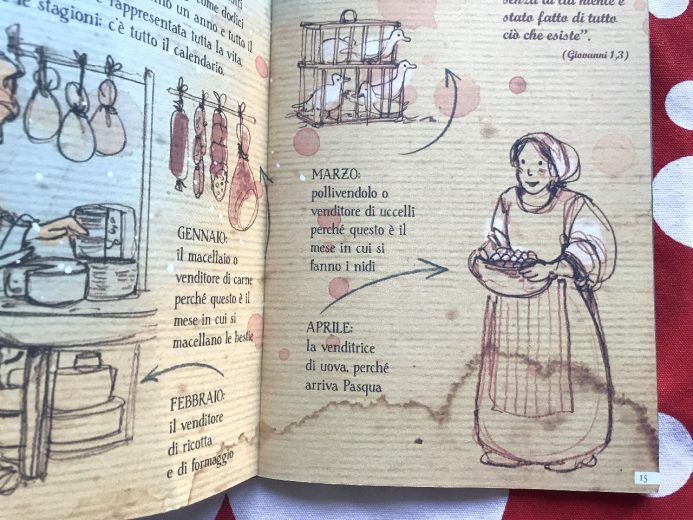 come dodici
no un anno e tutto il
le stagioni: c'è tutto il calendario.
rappresentata tutta la vita,
GENNAIO:
il macellaio o
venditore di carne
perché questo è il
mese in cui si
macellano le bestie
FEBBRAIO:
il venditore
di ricotta
e di formaggio
stato fatto di tutto
ciò che esiste”.
(Giovanni 1,3)
MARZO:
pollivendolo o
venditore di uccelli
perché questo è il
mese in cui si
fanno i nidi
APRILE:
la venditrice
di uova, perché
arriva Pasqua
15